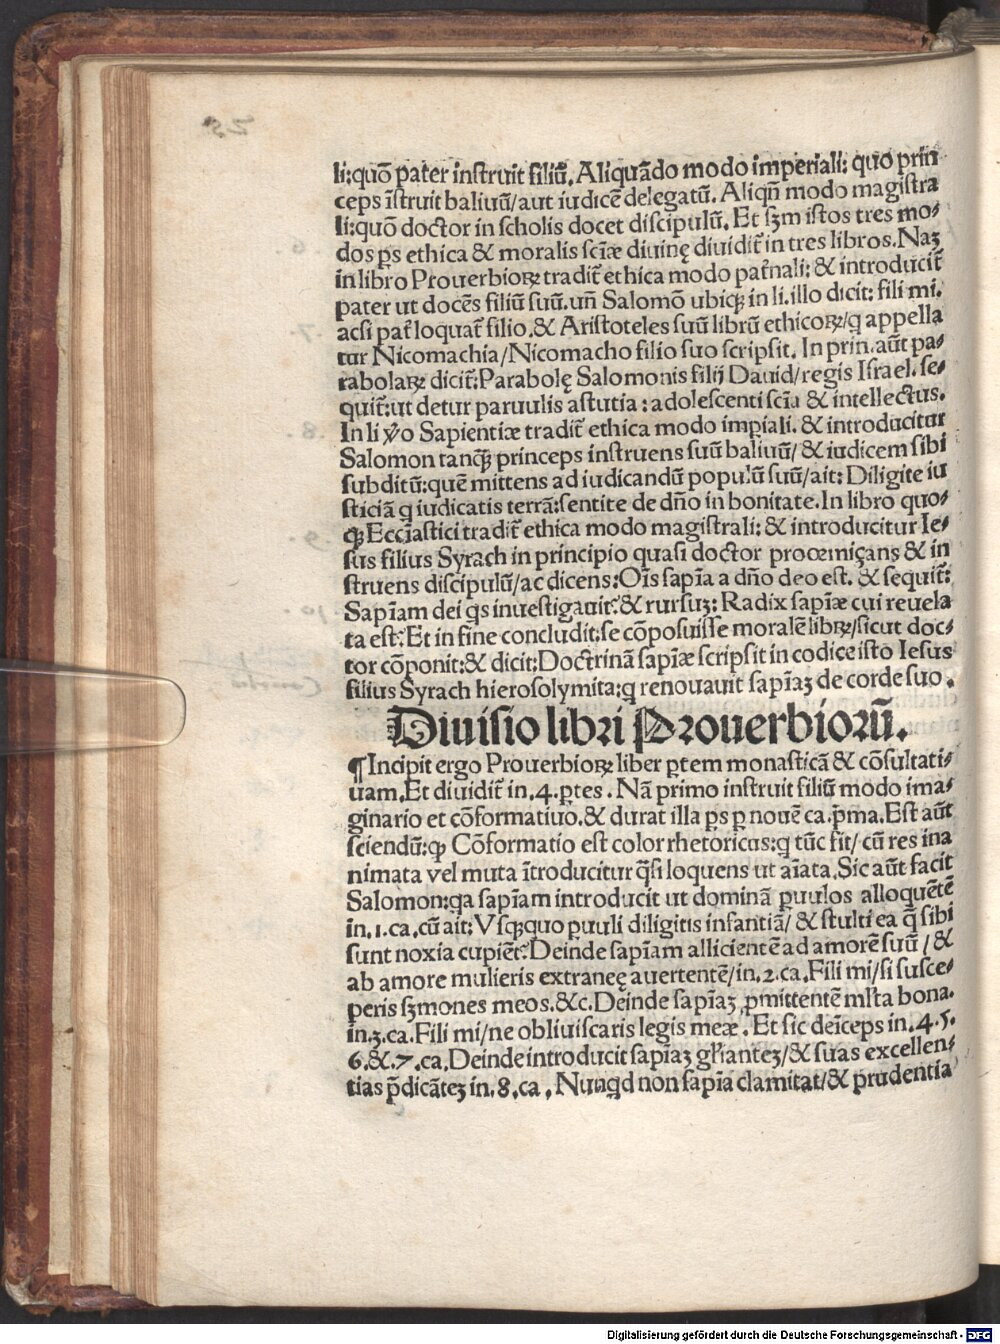 li:quō pater instruit filiū. Aliquādo modo imperiali: quo prin
ceps īstruit baliuū/aut iudicē delegatū. Aliqñ modo magistra
li:quō doctor in scholis docet discipulū. Et sꝫm istos tres mo⸗
dos ꝑs ethica & moralis sciæ diuinę diuidit̄ in tres libros. Naꝫ
in libro Prouerbioꝝ tradit̄ ethica modo pat̄nali: & introducit̄
pater ut docēs filiū suū. uñ Salomō ubiqꝫ in li. illo dicit: fili mi.
acsi pat̄ loquat̄ filio. & Aristoteles suū librū ethicoꝝ/q appella
tur Nicomachia/Nicomacho filio suo scripsit. In prin. aūt pa⸗
rabolaꝝ dicit̄: Parabolę Salomonis filij Dauid/regis Israel. se⸗
quit̄: ut detur paruulis astutia : adolescenti scīa & intellectus.
In li ꝟo Sapientiæ tradit̄ ethica modo impiali. & introducitur
Salomon tanqꝫ princeps instruens suū baliuū/ & iudicem sibi
subditū: quē mittens ad iudicandū populū suū/ait: Diligite iu
sticiā q iudicatis terrā: sentite de dño in bonitate. In libro quo⸗
qꝫ Eccīastici tradit̄ ethica modo magistrali: & introducitur Ie⸗
sus filius Syrach in principio quasi doctor proœmiçans & in
struens discipulū/ac dicens: Oīs sapīa a dño deo est. & sequit̄:
Sapīam dei qs inuestigauit. & rursuꝫ: Radix sapīæ cui reuela
ta est. Et in fine concludit: se cōposuisse moralē libꝝ/sicut doc⸗
tor cōponit: & dicit: Doctrinā sapīæ scripsit in codice isto Iesus
filius Syrach hierosolymita: q renouauit sapīaꝫ de corde suo.
Diuisio libri Prouerbiorū.
¶ Incipit ergo Prouerbioꝝ liber ꝑtem monasticā & cōsultati⸗
uam. Et diuidit̄ in .4. ꝑtes . Nā primo instruit filiū modo ima⸗
ginario et cōformatiuo. & durat illa ꝑs ꝑ nouē ca. p̄ma. Est aūt
sciendū: ꝙ Cōformatio est color rhetoricus: q tūc fit/ cū res ina
nimata vel muta ītroducitur q̄si loquens ut aīata. Sic aūt facit
Salomon: qa sapīam introducit ut dominā ꝑuulos alloquētē
in .1. ca. cū ait: Vsqꝫquo ꝑuuli diligitis infantiā/ & stulti ea q̄ sibi
sunt noxia cupiēt. Deinde sapīam allicientē ad amorē suū / &
ab amore mulieris extraneę auertentē/in .2. ca. Fili mi/si susce⸗
peris sꝫmones meos. &c. Deinde sapīaꝫ ꝓmittentē mlta bona.
in .3. ca. Fili mi/ne obliuiscaris legis meæ. Et sic deīceps in .4. 5.
6. & .7. ca. Deinde introducit sapīaꝫ gl̄ianteꝫ/& suas excellen⸗
tias p̄dicāteꝫ in .8. ca . Nunqd non sapīa clamitat/& prudentia
Digitalisierung gefördert durch die Deutsche Forschungsgemeinschaft - DFG